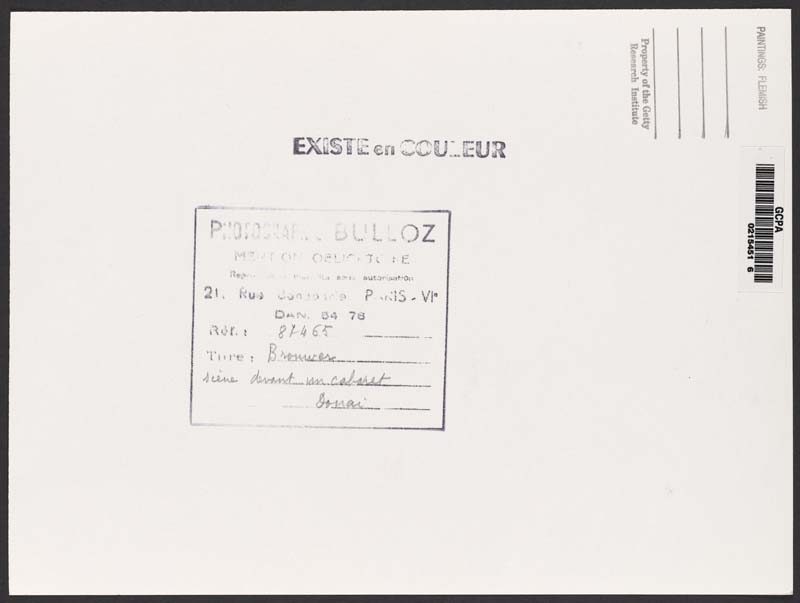 PAINTINGS: FLEMISH
Property of the Getty
Research Institute
EXISTE en COULEUR
GCPA
0215451 6
PHOTOGRAPHIE BULLOZ
MENTION OBLIGATOIRE
Reproduction interdite sans autorisation
21, Rue Bonaparte PARIS - VIe
DAN. 54 78
Réf.: 87465
Titre: Brouwer
scène devant un cabaret
Douai